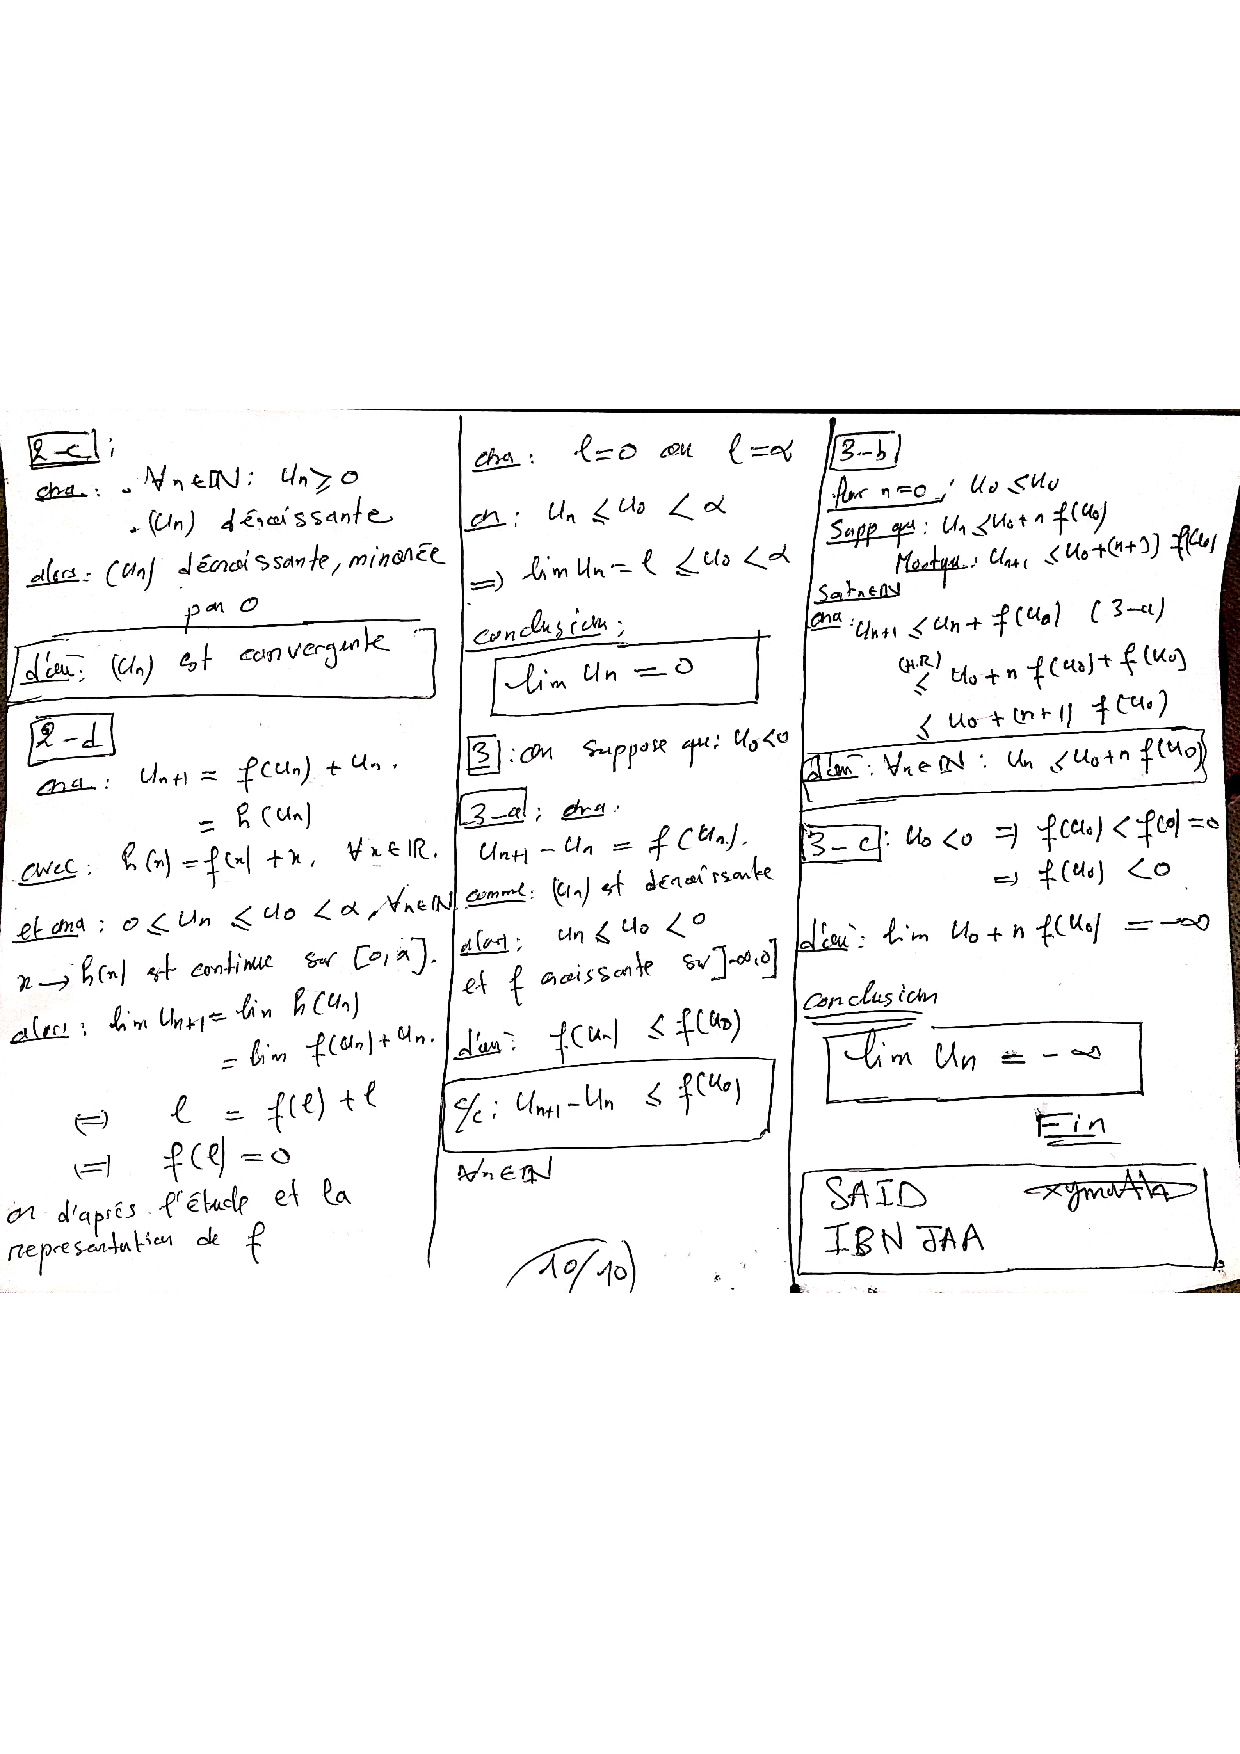 2-c:
ona: . ∀n∈ℕ: Un ≥ 0
. (Un) décroissante
alors: (Un) décroissante, minorée
par 0
d'où: (Un) est convergente
2-d
ona: Un+1 = f(Un) + Un.
= h(Un)
avec: h(x) = f(x) + x, ∀x∈ℝ.
et ona: 0 ≤ Un ≤ U0 < α, ∀n∈ℕ
x → h(x) est continue sur [0,α].
alors: lim Un+1 = lim h(Un)
= lim f(Un) + Un.
⇔ l = f(l) + l
⇔ f(l) = 0
or d'après l'étude et la
representation de f
ona: l=0 ou l=α
or: Un ≤ U0 < α
⇒ lim Un = l ≤ U0 < α
conclusion:
lim Un = 0
3: on suppose que: U0<0
3-a: ona:
Un+1 - Un = f(Un).
comme: (Un) est décroissante
alors: Un ≤ U0 < 0
et f croissante sur ]-∞,0]
d'où: f(Un) ≤ f(U0)
c/c: Un+1 - Un ≤ f(U0)
∀n∈ℕ
10/10
3-b
pour n=0: U0 ≤ U0
Supp que: Un ≤ U0 + n f(U0)
Montque: Un+1 ≤ U0 + (n+1) f(U0)
Soit n∈ℕ
ona: Un+1 ≤ Un + f(U0) (3-a)
(H.R) ≤ U0 + n f(U0) + f(U0)
≤ U0 + (n+1) f(U0)
d'où: ∀n∈ℕ: Un ≤ U0 + n f(U0)
3-c: U0<0 ⇒ f(U0) < f(0) = 0
⇒ f(U0) < 0
d'où: lim U0 + n f(U0) = -∞
Conclusion
lim Un = -∞
Fin
SAID xymath
IBN JAA